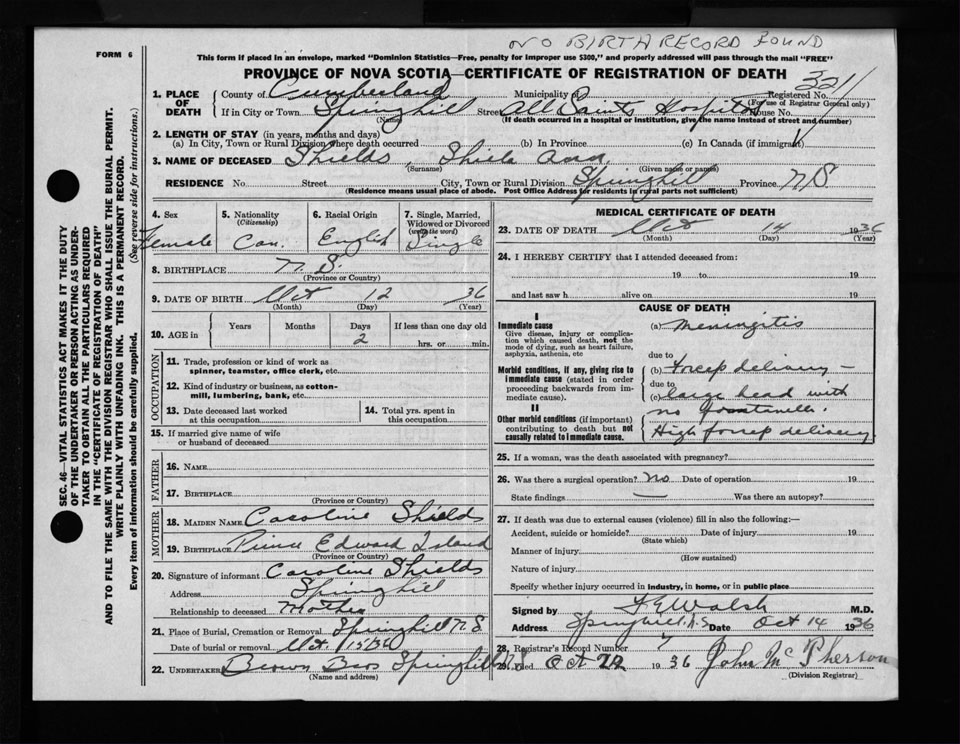 NO BIRTH RECORD FOUND
FORM 6
This form if placed in an envelope, marked "Dominion Statistics—Free, penalty for improper use $300," and properly addressed will pass through the mail "FREE"
PROVINCE OF NOVA SCOTIA—CERTIFICATE OF REGISTRATION OF DEATH
SEC. 46—VITAL STATISTICS ACT MAKES IT THE DUTY
OF THE UNDERTAKER OR PERSON ACTING AS UNDER-
TAKER TO OBTAIN ALL THE PARTICULARS REQUIRED
IN THE "CERTIFICATE OF REGISTRATION OF DEATH"
AND TO FILE THE SAME WITH THE DIVISION REGISTRAR WHO SHALL ISSUE THE BURIAL PERMIT.
WRITE PLAINLY WITH UNFADING INK. THIS IS A PERMANENT RECORD.
Every item of information should be carefully supplied. (See reverse side for instructions.)
1. PLACE OF DEATH County of Cumberland Municipality of Registered No. 3211
(For use of Registrar General only)
If in City or Town Springhill Street All Saints Hospital House No.
(Name) (If death occurred in a hospital or institution, give the name instead of street and number)
2. LENGTH OF STAY (in years, months and days)
(a) In City, Town or Rural Division where death occurred (b) In Province (c) In Canada (if immigrant)
3. NAME OF DECEASED Shields, Shiela Ann
(Surname) (Given name or names)
RESIDENCE No. Street City, Town or Rural Division Springhill Province N.S.
(Residence means usual place of abode. Post Office Address for residents in rural parts not sufficient)
4. Sex Female
5. Nationality (Citizenship) Can.
6. Racial Origin English
7. Single, Married, Widowed or Divorced (write the word) Single
8. BIRTHPLACE N.S.
(Province or Country)
9. DATE OF BIRTH Oct 12 36
(Month) (Day) (Year)
10. AGE in Years Months Days 2 If less than one day old hrs. or min.
OCCUPATION
11. Trade, profession or kind of work as spinner, teamster, office clerk, etc.
12. Kind of industry or business, as cotton-mill, lumbering, bank, etc.
13. Date deceased last worked at this occupation
14. Total yrs. spent in this occupation
15. If married give name of wife or husband of deceased
FATHER
16. NAME
17. BIRTHPLACE
(Province or Country)
MOTHER
18. MAIDEN NAME Caroline Shields
19. BIRTHPLACE Prince Edward Island
(Province or Country)
20. Signature of informant Caroline Shields
Address Springhill
Relationship to deceased Mother
21. Place of Burial, Cremation or Removal Springhill N.S.
Date of burial or removal Oct. 15/36
22. UNDERTAKER Brown Bros Springhill N.S.
(Name and address)
MEDICAL CERTIFICATE OF DEATH
23. DATE OF DEATH Oct 14 1936
(Month) (Day) (Year)
24. I HEREBY CERTIFY that I attended deceased from:
19 to 19
and last saw h alive on 19
CAUSE OF DEATH
I
Immediate cause
Give disease, injury or complication which caused death, not the mode of dying, such as heart failure, asphyxia, asthenia, etc
(a) Meningitis
due to
Morbid conditions, if any, giving rise to immediate cause (stated in order proceeding backwards from immediate cause).
(b) Forcep delivery -
due to
(c) large head with
no fontanelle.
II
Other morbid conditions (if important) contributing to death but not causally related to immediate cause.
High forcep delivery
25. If a woman, was the death associated with pregnancy?
26. Was there a surgical operation? No Date of operation 19
State findings — Was there an autopsy?
27. If death was due to external causes (violence) fill in also the following:—
Accident, suicide or homicide? Date of injury 19
(State which)
Manner of injury
(How sustained)
Nature of injury
Specify whether injury occurred in industry, in home, or in public place
Signed by F E Walsh M.D.
Address Springhill N.S. Date Oct 14 1936
28. Registrar's Record Number 7
29. Filed Oct 22 1936 John McPherson
(Division Registrar)